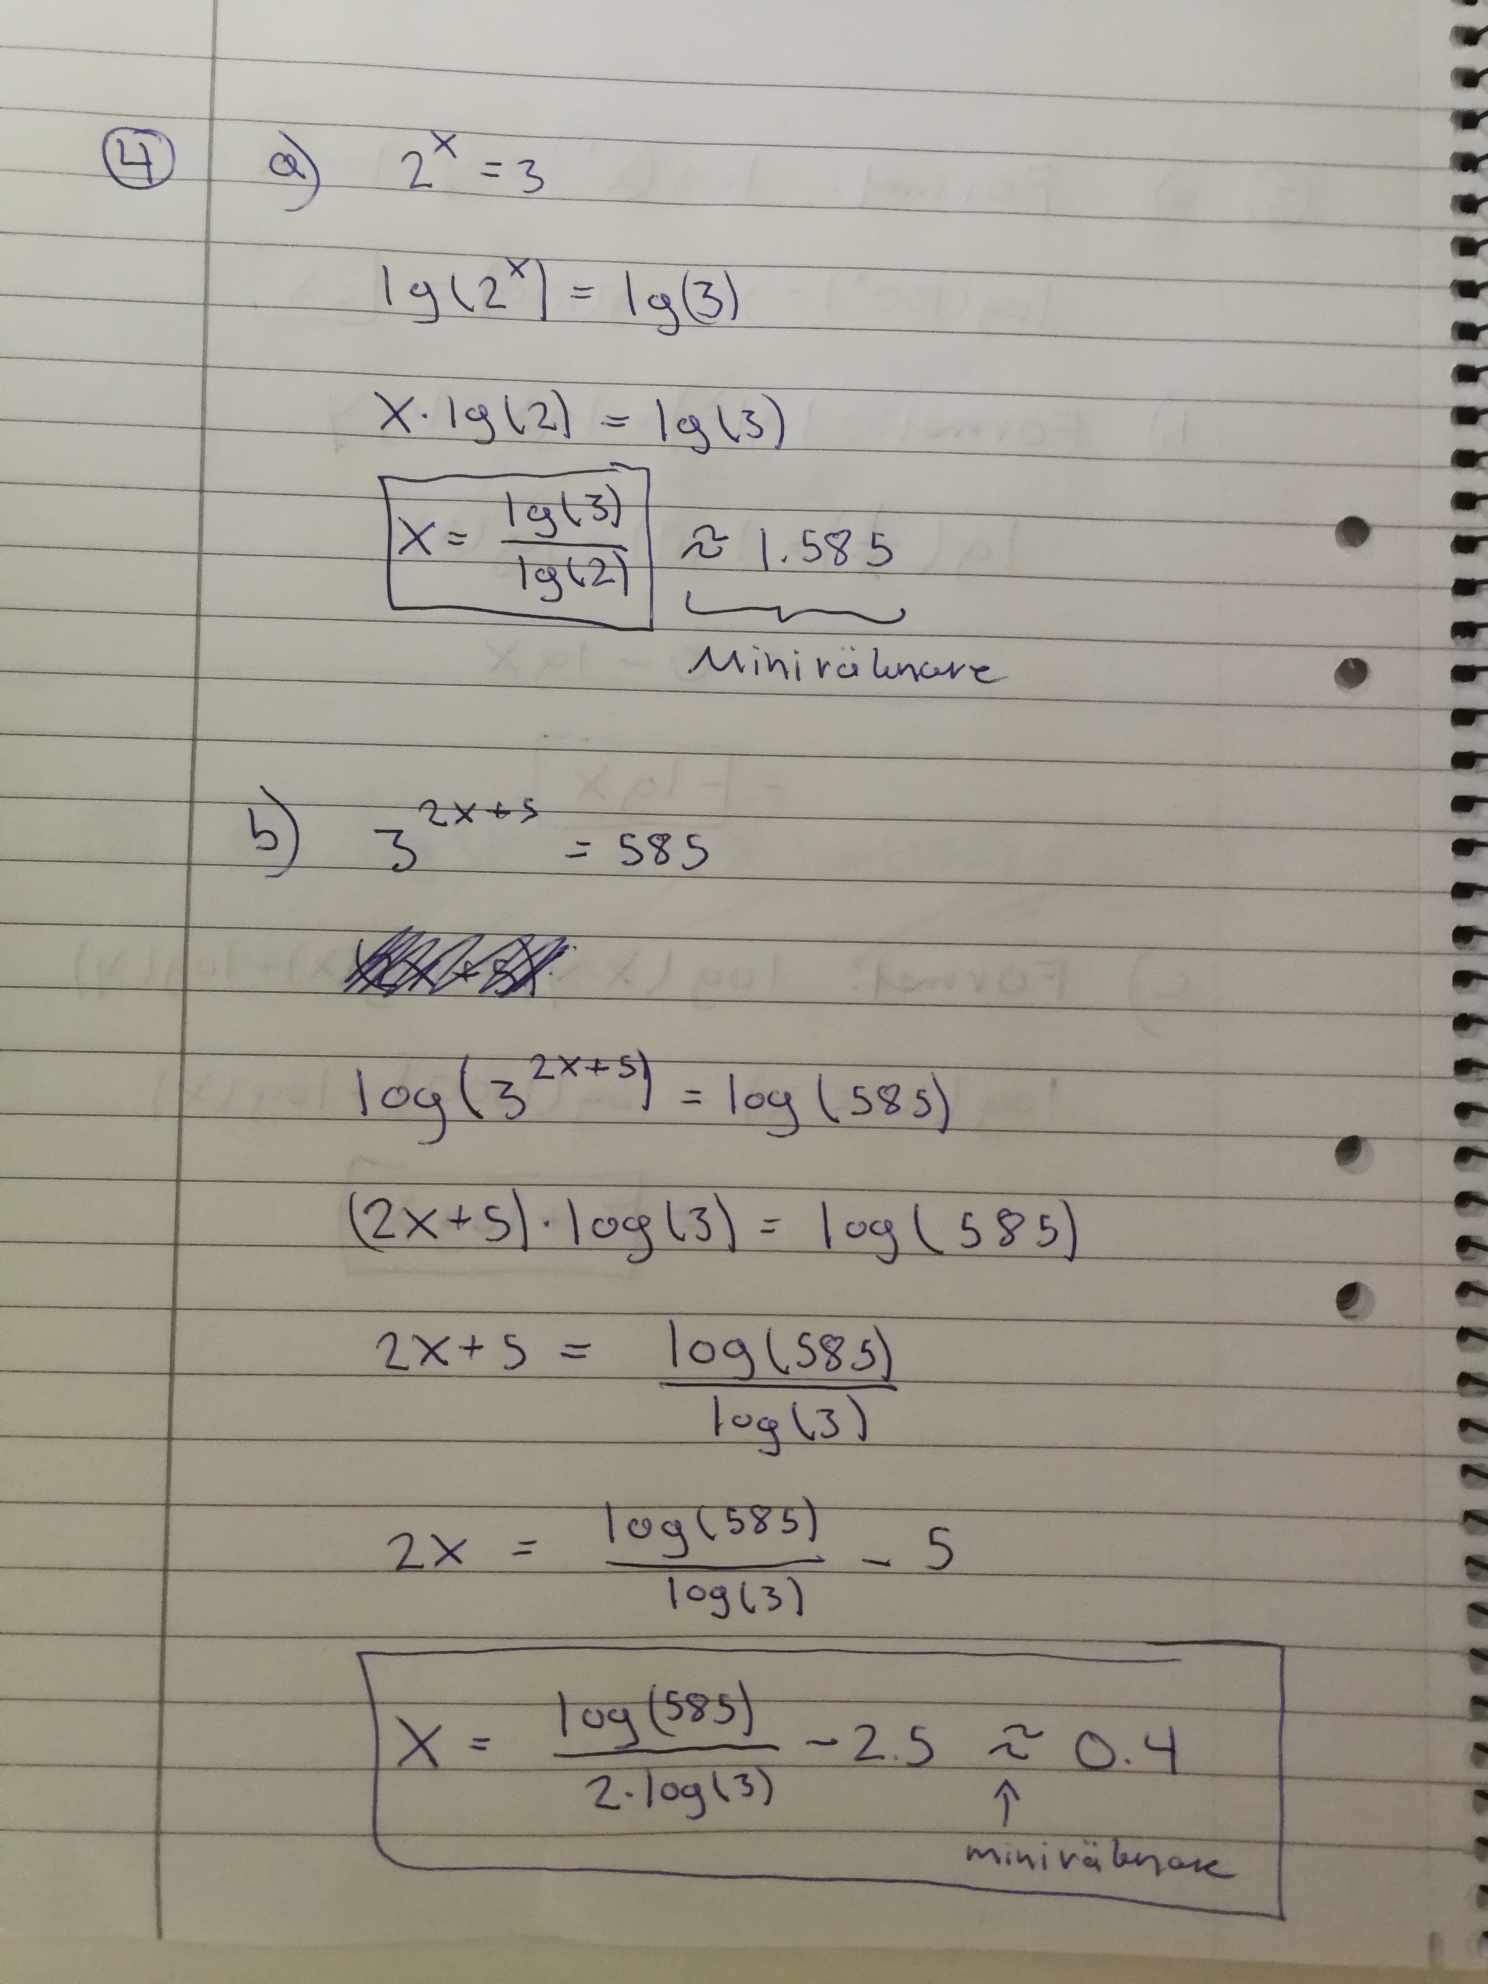 4 a) 2^x = 3
lg(2^x) = lg(3)
x · lg(2) = lg(3)
x = lg(3)/lg(2) ≈ 1.585
Miniräknare
b) 3^(2x+5) = 585
log(3^(2x+5)) = log(585)
(2x+5) · log(3) = log(585)
2x+5 = log(585)/log(3)
2x = log(585)/log(3) - 5
x = log(585)/(2·log(3)) - 2.5 ≈ 0.4
↑
miniräknare